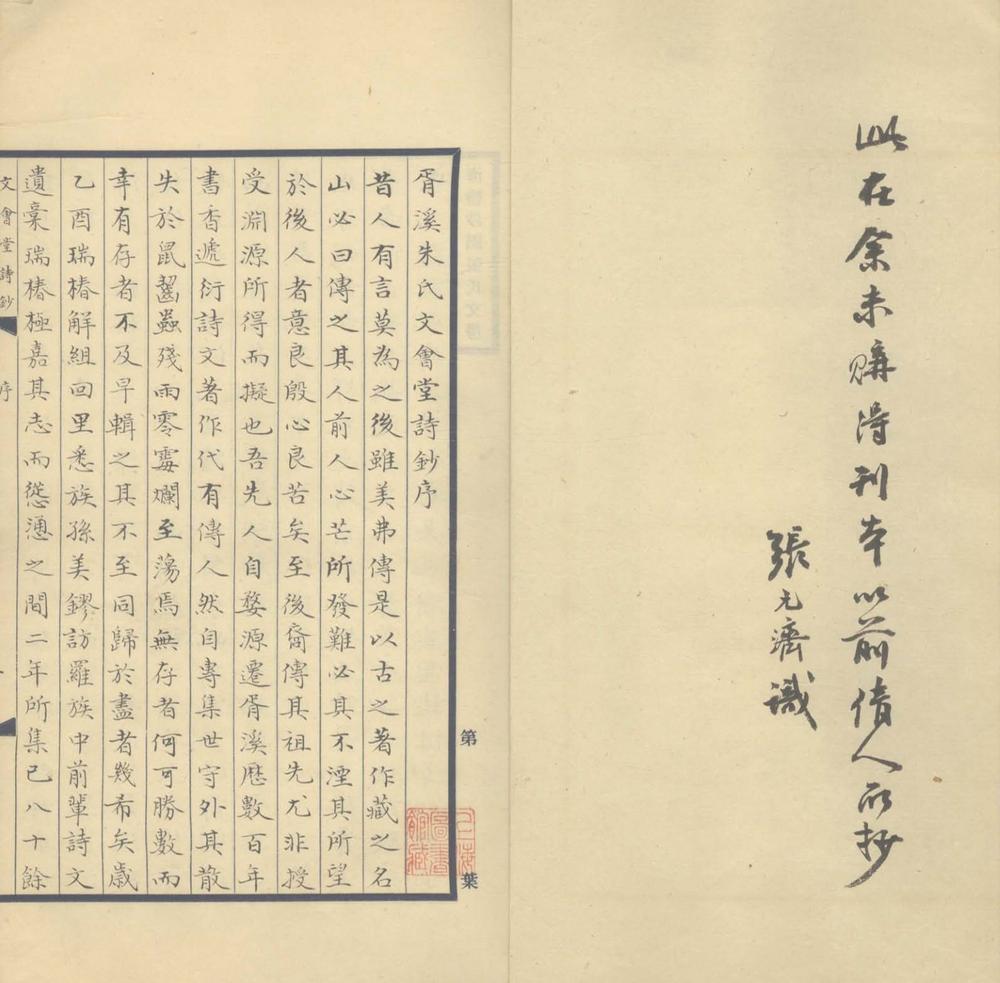 此在余未購得刊本以前倩人所抄
張元濟識
第
葉
上海圖書館藏
胥溪朱氏文會堂詩鈔序
昔人有言莫為之後雖美弗傳是以古之著作藏之名
山必曰傳之其人前人心芒所發難必其不湮其所望
於後人者意良殷心良苦矣至後裔傳其祖先尤非授
受淵源所得而擬也吾先人自婺源遷胥溪歷數百年
書香遞衍詩文著作代有傳人然自專集世守外其散
失於鼠齧蟲殘雨零霉爛至蕩焉無存者何可勝數而
幸有存者不及早輯之其不至同歸於盡者幾希矣歲
乙酉瑞椿解組回里悉族孫美鏐訪羅族中前輩詩文
遺稾瑞椿極嘉其志而慫恿之間二年所集已八十餘
文會堂詩鈔
序